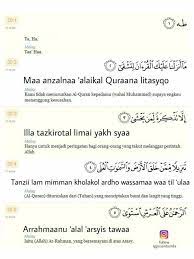 طه ١
20:1
Ta, Ha.
Malay
Taa' Haa.
20:2
مَا أَنزَلْنَا عَلَيْكَ الْقُرْآنَ لِتَشْقَىٰ ٢
Maa anzalnaa 'alaikal Quraana litasyqo
Malay
Kami tidak menurunkan Al-Quran kepadamu (wahai Muhammad) supaya engkau
menanggung kesusahan.
20:3
إِلَّا تَذْكِرَةً لِّمَن يَخْشَىٰ ٣
Illa tazkirotal limai yakh syaa
Malay
Hanya untuk menjadi peringatan bagi orang-orang yang takut melanggar perintah
Allah
20:4
تَنزِيلًا مِّمَّنْ خَلَقَ الْأَرْضَ وَالسَّمَاوَاتِ الْعُلَى ٤
Tanzii lam mimman kholakol ardho wassamaa waa til 'ulaa
Malay
(Al-Quran) diturunkan dari (Tuhan) yang menciptakan bumi dan langit yang tinggi.
20:5
الرَّحْمَٰنُ عَلَى الْعَرْشِ اسْتَوَىٰ ٥
Arrahmaanu 'alal 'arsyis tawaa
Malay
Iaitu (Allah) Ar-Rahman, yang bersemayam di atas Arasy.